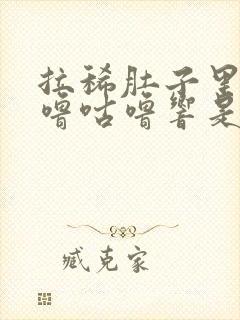 拉稀肚子里
噜咕噜响是
臧克家